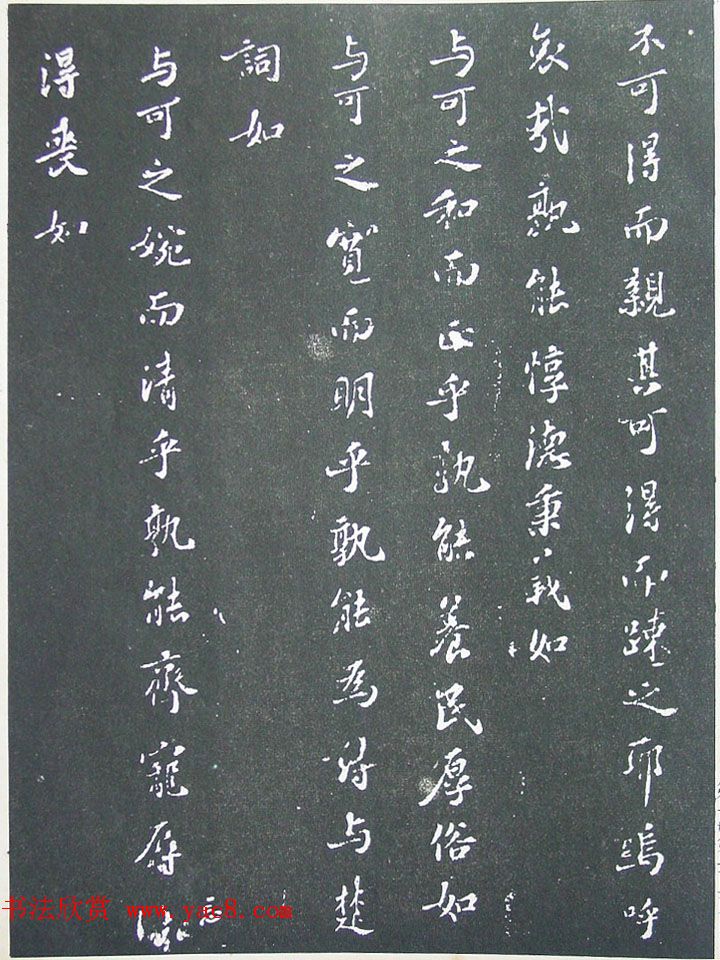 不可得而親其可得而踈之耶嗚呼
哀哉孰能惇德秉義如
与可之和而正乎孰能養民厚俗如
与可之寬而明乎孰能為詩与楚
詞如
与可之婉而清乎孰能齊寵辱
得喪如
书法欣赏 www.yac8.com